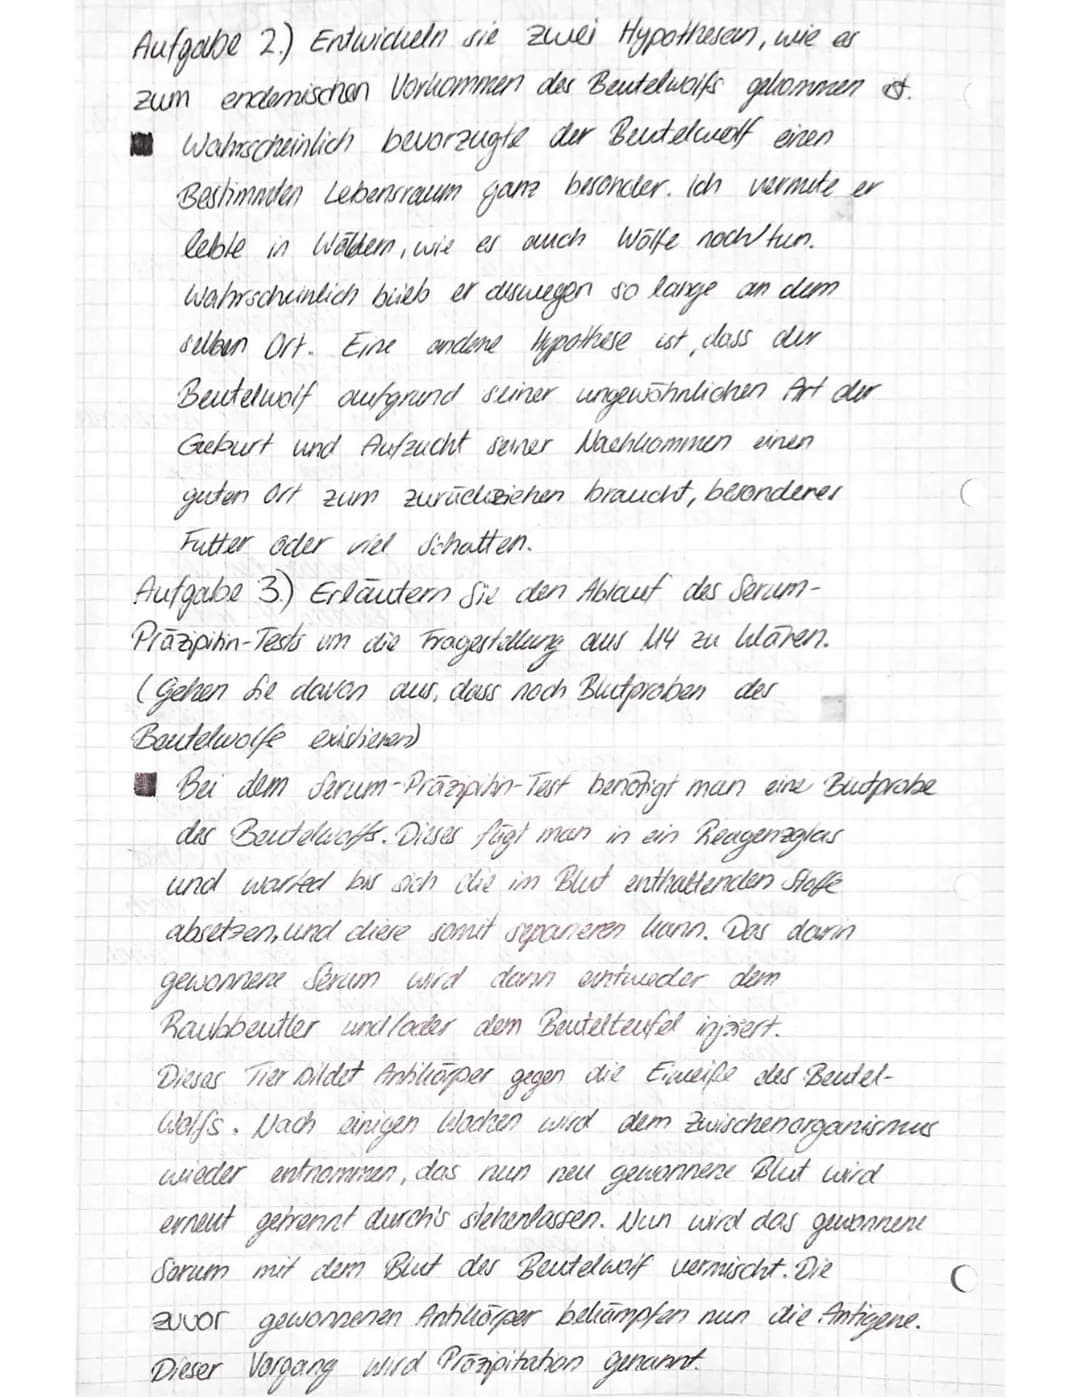 Aufgabe 2.) Entwickeln sie zwei Hypothesen, wie es
zum endemischen Vorkommen des Beutelwolfs gekommen ist.
Wahrscheinlich bevorzugte der Beutelwolf einen
Bestimmten Lebensraum ganz besonder. Ich vermute er
lebte in Wäldern, wie es auch Wölfe noch tun.
Wahrscheinlich blieb er deswegen so lange an dem
selben Ort. Eine andere Hypothese ist, dass der
Beutelwolf aufgrund seiner ungewöhnlichen Art der
Geburt und Aufzucht seiner Nachkommen einen
guten Ort zum zurückziehen braucht, besonderes
Futter oder viel Schatten.
Aufgabe 3.) Erläutern Sie den Ablauf des Serum-
Präzipitin-Tests um die Fragestellung aus M4 zu klären.
(Gehen Sie davon aus, dass noch Blutproben des
Beutelwolfs existieren)
Bei dem Serum-Präzipitin-Test benötigt man eine Blutprobe
des Beutelwolfs. Dieses fügt man in ein Reagenzglas
und warted bis sich die im Blut enthaltenden Stoffe
absetzen, und diese somit separieren kann. Das darin
gewonnene Serum wird dann entweder dem
Raubbeutler und/oder dem Beutelteufel injiziert.
Dieses Tier bildet Antikörper gegen die Eiweiße des Beutel-
Wolfs. Nach einigen Wochen wird dem Zwischenorganismus
wieder entnommen, das nun neu gewonnene Blut wird
erneut getrennt durch's stehenlassen. Nun wird das gewonnene
Serum mit dem Blut des Beutelwolf vermischt. Die
zuvor gewonnenen Antikörper bekämpfen nun die Antigene.
Dieser Vorgang wird Präzipitation genannt.